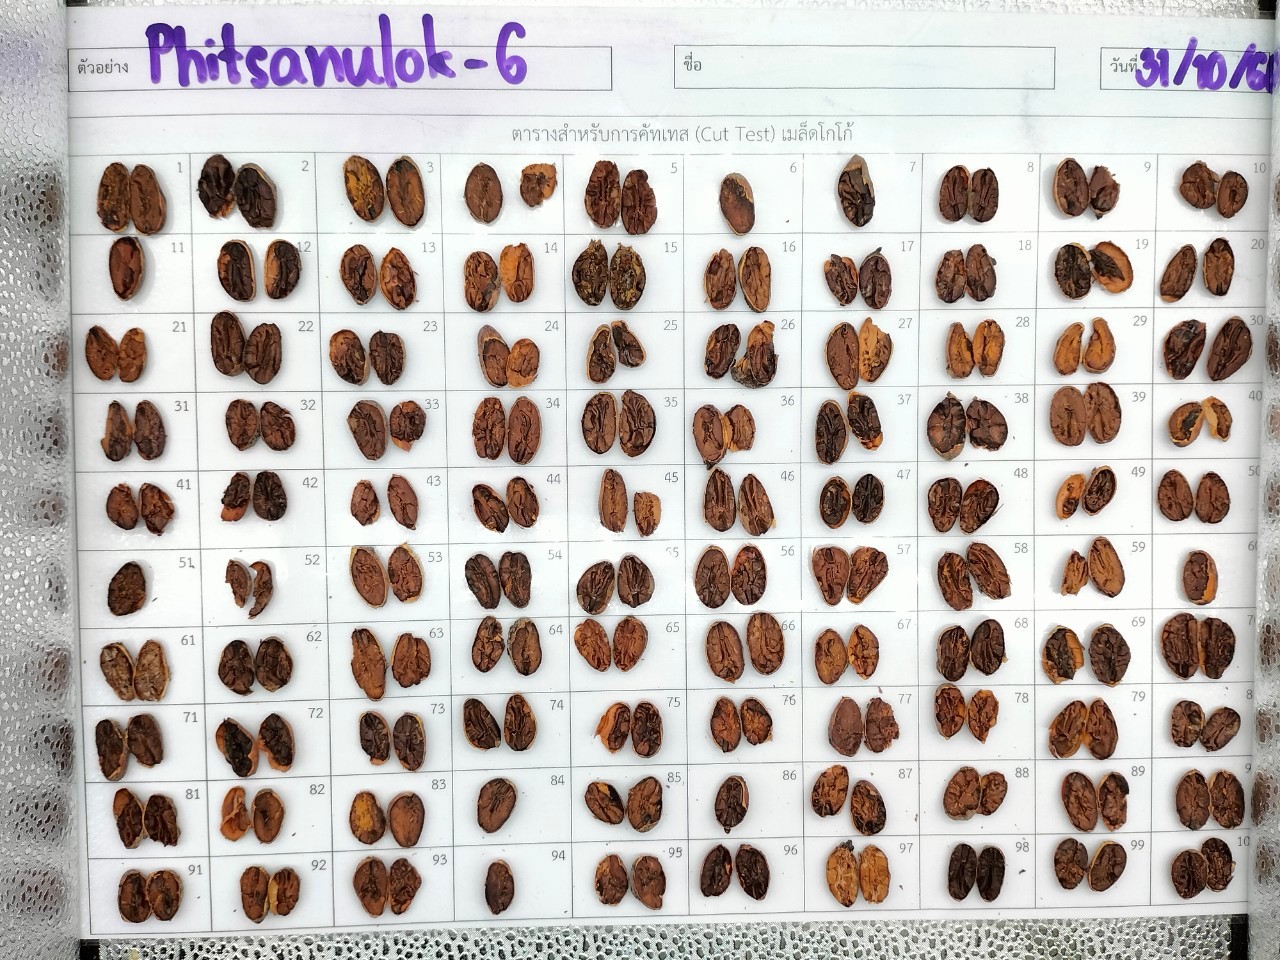 ตัวอย่าง Phitsanulok-6 ชื่อ วันที่ 31/10/6
ตารางสำหรับการคัทเทส (Cut Test) เมล็ดโกโก้
1 2 3 5 6 7 8 9 10
11 12 13 14 15 16 17 18 19 20
21 22 23 24 25 26 27 28 29 30
31 32 33 34 35 36 37 38 39 40
41 42 43 44 45 46 47 48 49 50
51 52 53 54 55 56 57 58 59 60
61 62 63 64 65 66 67 68 69 7
71 72 73 74 75 76 77 78 79 8
81 82 83 84 85 86 87 88 89 9
91 92 93 94 95 96 97 98 99 10